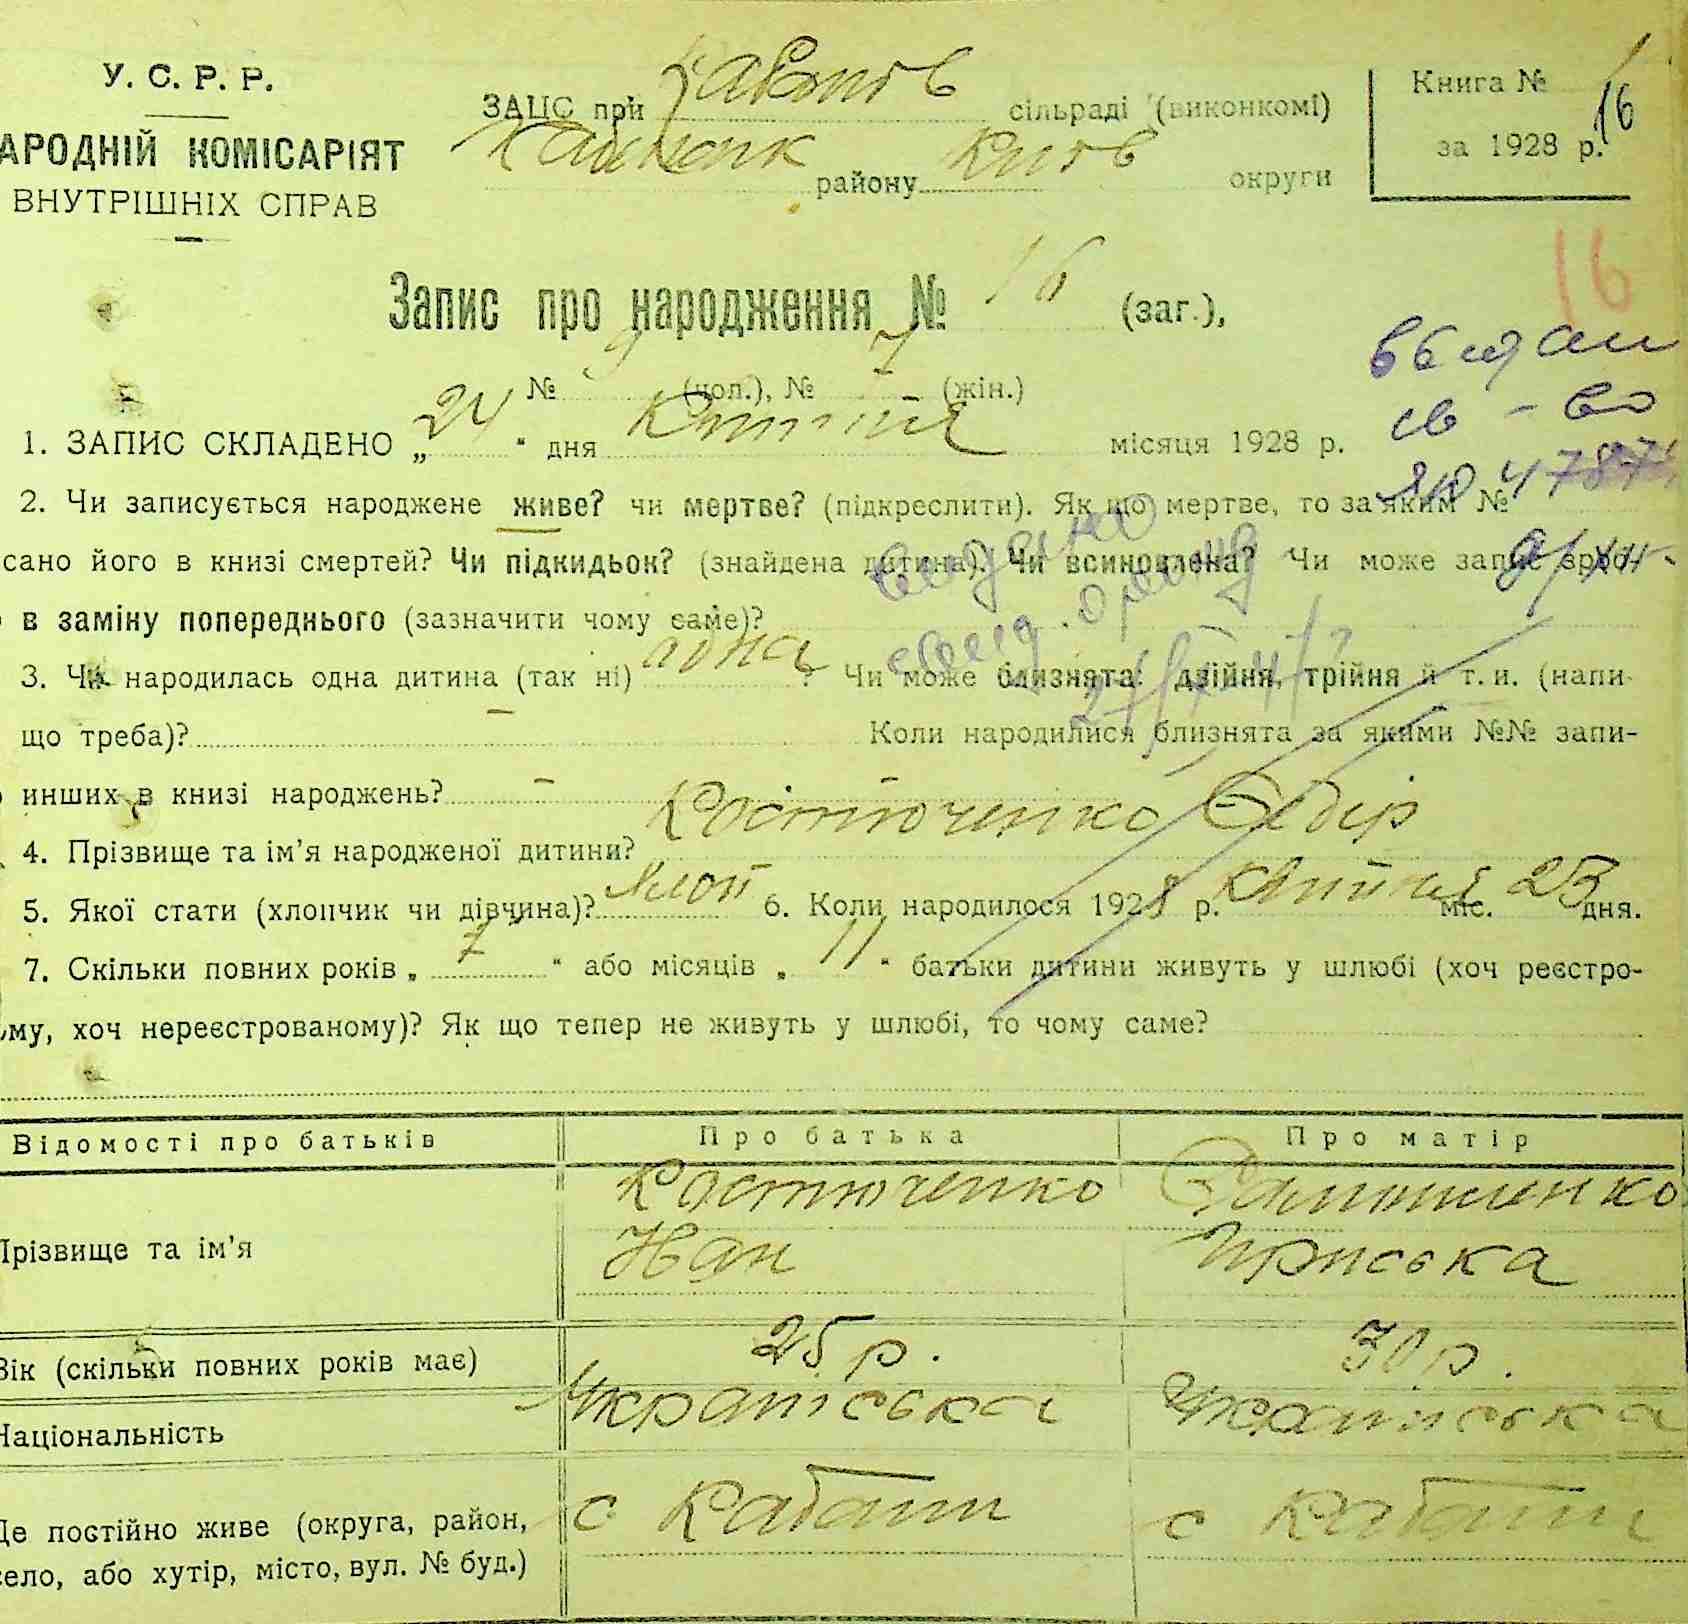 У. С. Р. Р.
АРОДНІЙ КОМІСАРІЯТ
ВНУТРІШНІХ СПРАВ
ЗАЦС при сільраді (виконкомі)
району Київ округи
Книга №
16
за 1928 р.
Запис про народження № 16 (заг.),
16
№ 9 (чол.), № 7 (жін.)
1. ЗАПИС СКЛАДЕНО „ 24 “ дня Квітня місяця 1928 р.
2. Чи записується народжене живе? чи мертве? (підкреслити). Як що мертве, то за яким №
сано його в книзі смертей? Чи підкидьок? (знайдена дитина). Чи всиновлена? Чи може запис зроб-
в заміну попереднього (зазначити чому саме)?
3. Чи народилась одна дитина (так ні) одна ? Чи може близнята: двійня, трійня й т. и. (напи-
що треба)? Коли народилися близнята за якими №№ запи-
инших в книзі народжень?
4. Прізвище та ім’я народженої дитини? Костюченко Федір
5. Якої стати (хлопчик чи дівчина)? 6. Коли народилося 1928 р. квітня міс. 23 дня.
7. Скільки повних років „ 7 “ або місяців „ 11 “ батьки дитини живуть у шлюбі (хоч реєстро-
ому, хоч нереєстрованому)? Як що тепер не живуть у шлюбі, то чому саме?
Відомості про батьків Про батька Про матір
Прізвище та ім’я
Костюченко
Іван
Приська
Вік (скільки повних років має) 25 р. 30 р.
Національність Українська Українська
Де постійно живе (округа, район, с Кабати с Кабати
село, або хутір, місто, вул. № буд.)